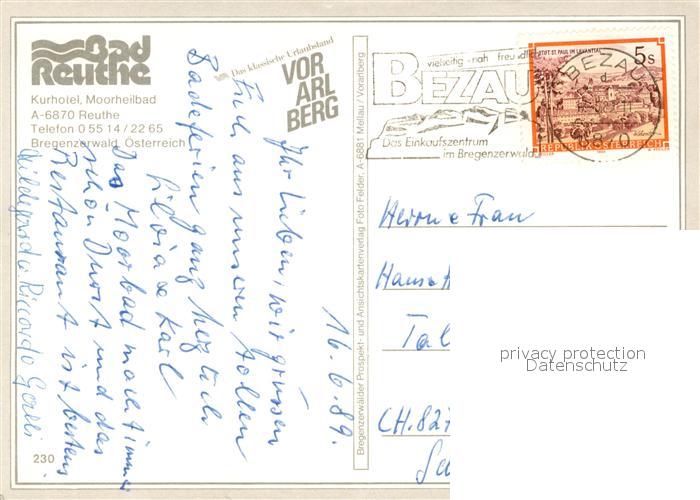 Bad
Reuthe
Kurhotel, Moorheilbad
A-6870 Reuthe
Telefon 0 55 14 / 22 65
Bregenzerwald, Österreich
Das klassische Urlaubsland
VOR
ARL
BERG
vielseitig - nah - freundlich
BEZAU
Das Einkaufszentrum
im Bregenzerwald
STIFT ST. PAUL IM LAVANTTAL
5s
REPUBLIK ÖSTERREICH
BEZAU
16.6.89.
Ihr Lieben, wir grüssen
Euch aus unseren tollen
Badeferien ganz herzlich
Silvia & Karl
Das Moorbad macht immer
schön Durst und das
Restaurant ist bestens
Hildegard & Riccardo Galli
Bregenzerwälder Prospekt- und Ansichtskartenverlag Foto Felder, A-6881 Mellau / Vorarlberg
Herrn & Frau
Tal
CH.827
230
privacy protection
Datenschutz